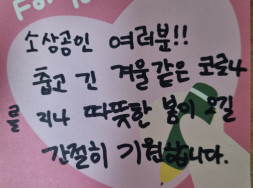 For You
소상공인 여러분!!
춥고 긴 겨울같은 코로나
를 지나 따뜻한 봄이 오길
간절히 기원합니다.